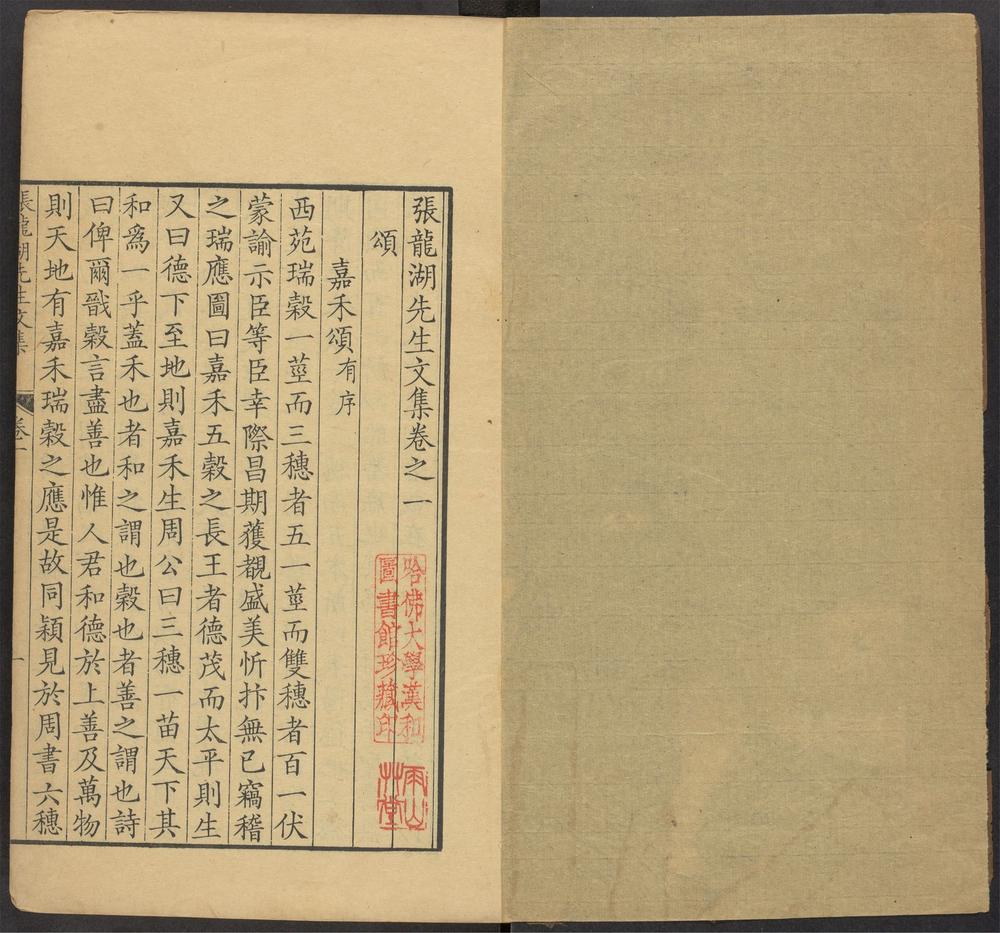 張龍湖先生文集卷之一
頌
嘉禾頌有序
西苑瑞穀一莖而三穗者五一莖而雙穗者百一伏
蒙諭示臣等臣幸際昌期獲覩盛美忻抃無已竊稽
之瑞應圖曰嘉禾五穀之長王者德茂而太平則生
又曰德下至地則嘉禾生周公曰三穗一苗天下其
和爲一乎蓋禾也者和之謂也穀也者善之謂也詩
曰俾爾戩穀言盡善也惟人君和德於上善及萬物
則天地有嘉禾瑞穀之應是故同穎見於周書六穗
張龍湖先生文集 卷一 一
哈佛大學漢和
圖書館珍藏印
雨山
草堂